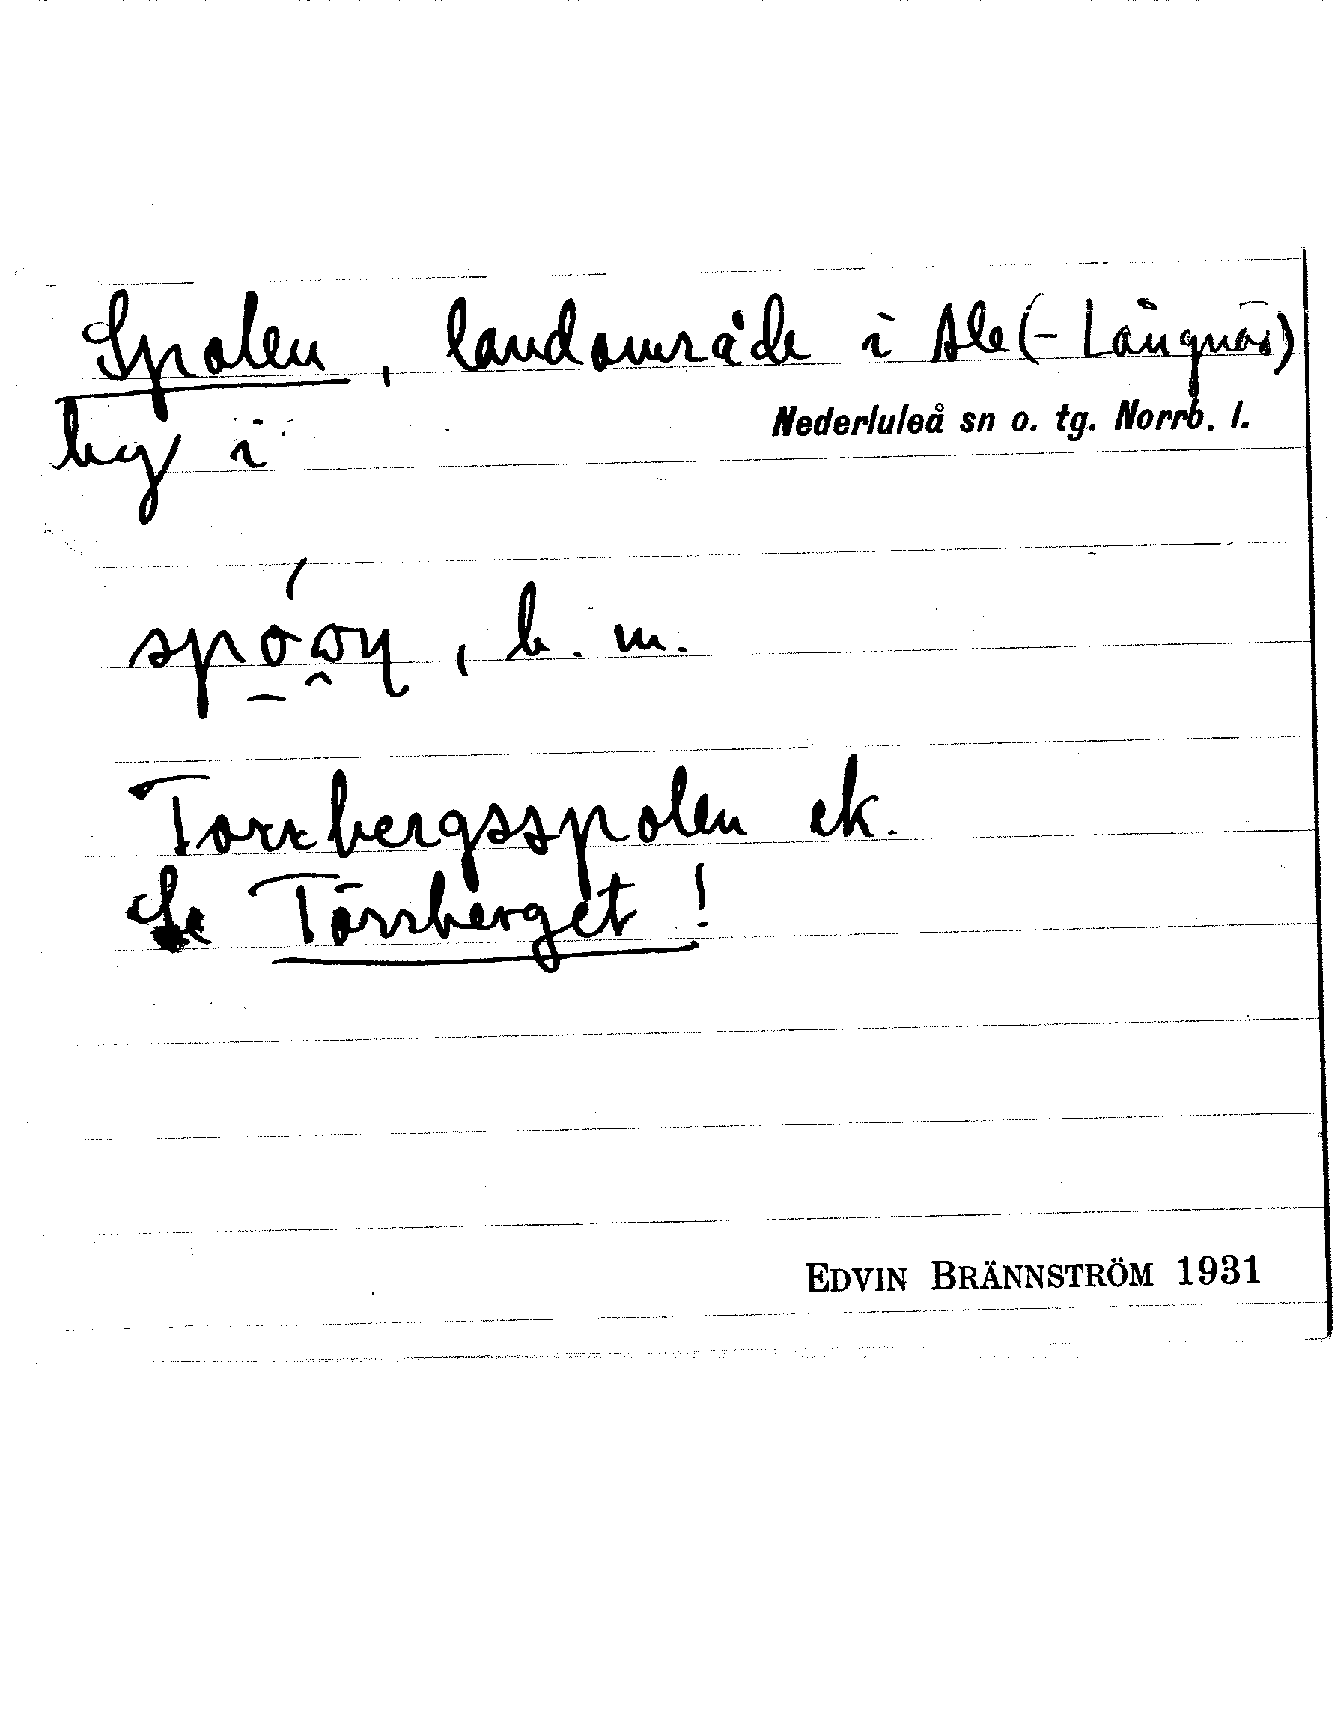 Spolen, landområde i Ale (- Långnäs)
by i Nederluleå sn o. tg. Norrb. l.
, b. m.
Torrbergsspolen ek.
Se Törrberget!
EDVIN BRÄNNSTRÖM 1931